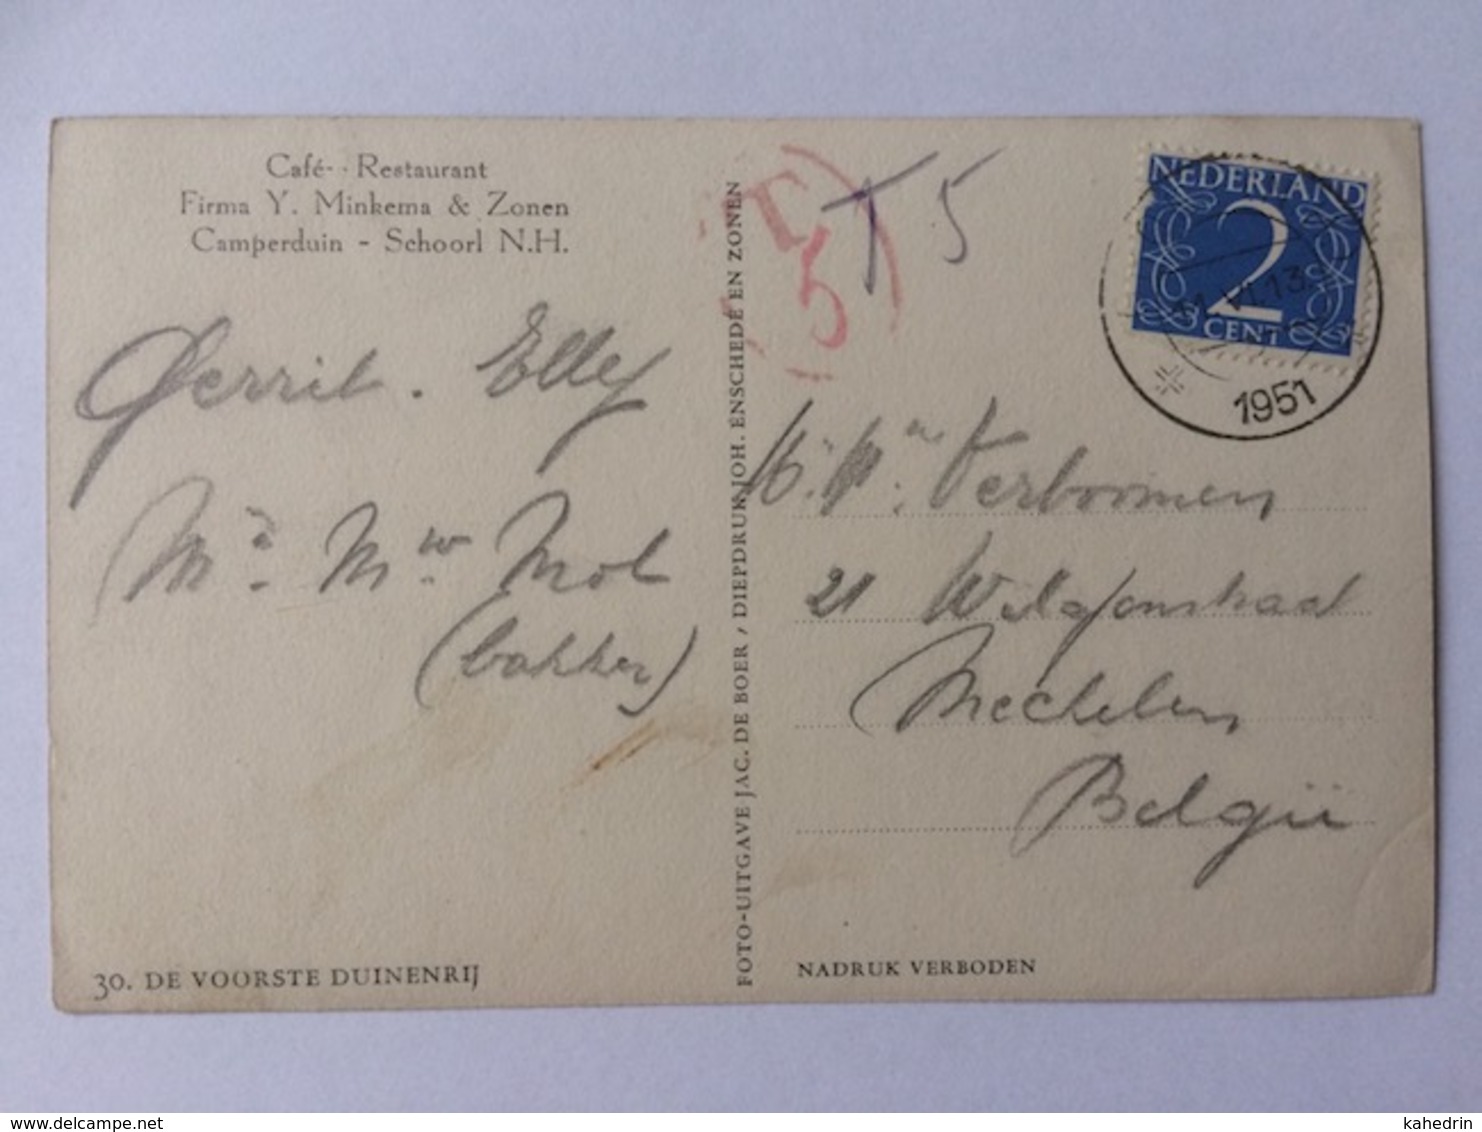 Café-Restaurant
Firma Y. Minkema & Zonen
Camperduin - Schoorl N.H.
Gerrit. Elly
Mr. Mw. Mol
(bakker)
30. DE VOORSTE DUINENRIJ
FOTO-UITGAVE JAC. DE BOER, DIEPDRUK JOH. ENSCHEDÉ EN ZONEN
T
5
T 5
NEDERLAND
2
CENT
1951
Verboomen
21 Wilgenstraat
Mechelen
België
NADRUK VERBODEN
kahedrin